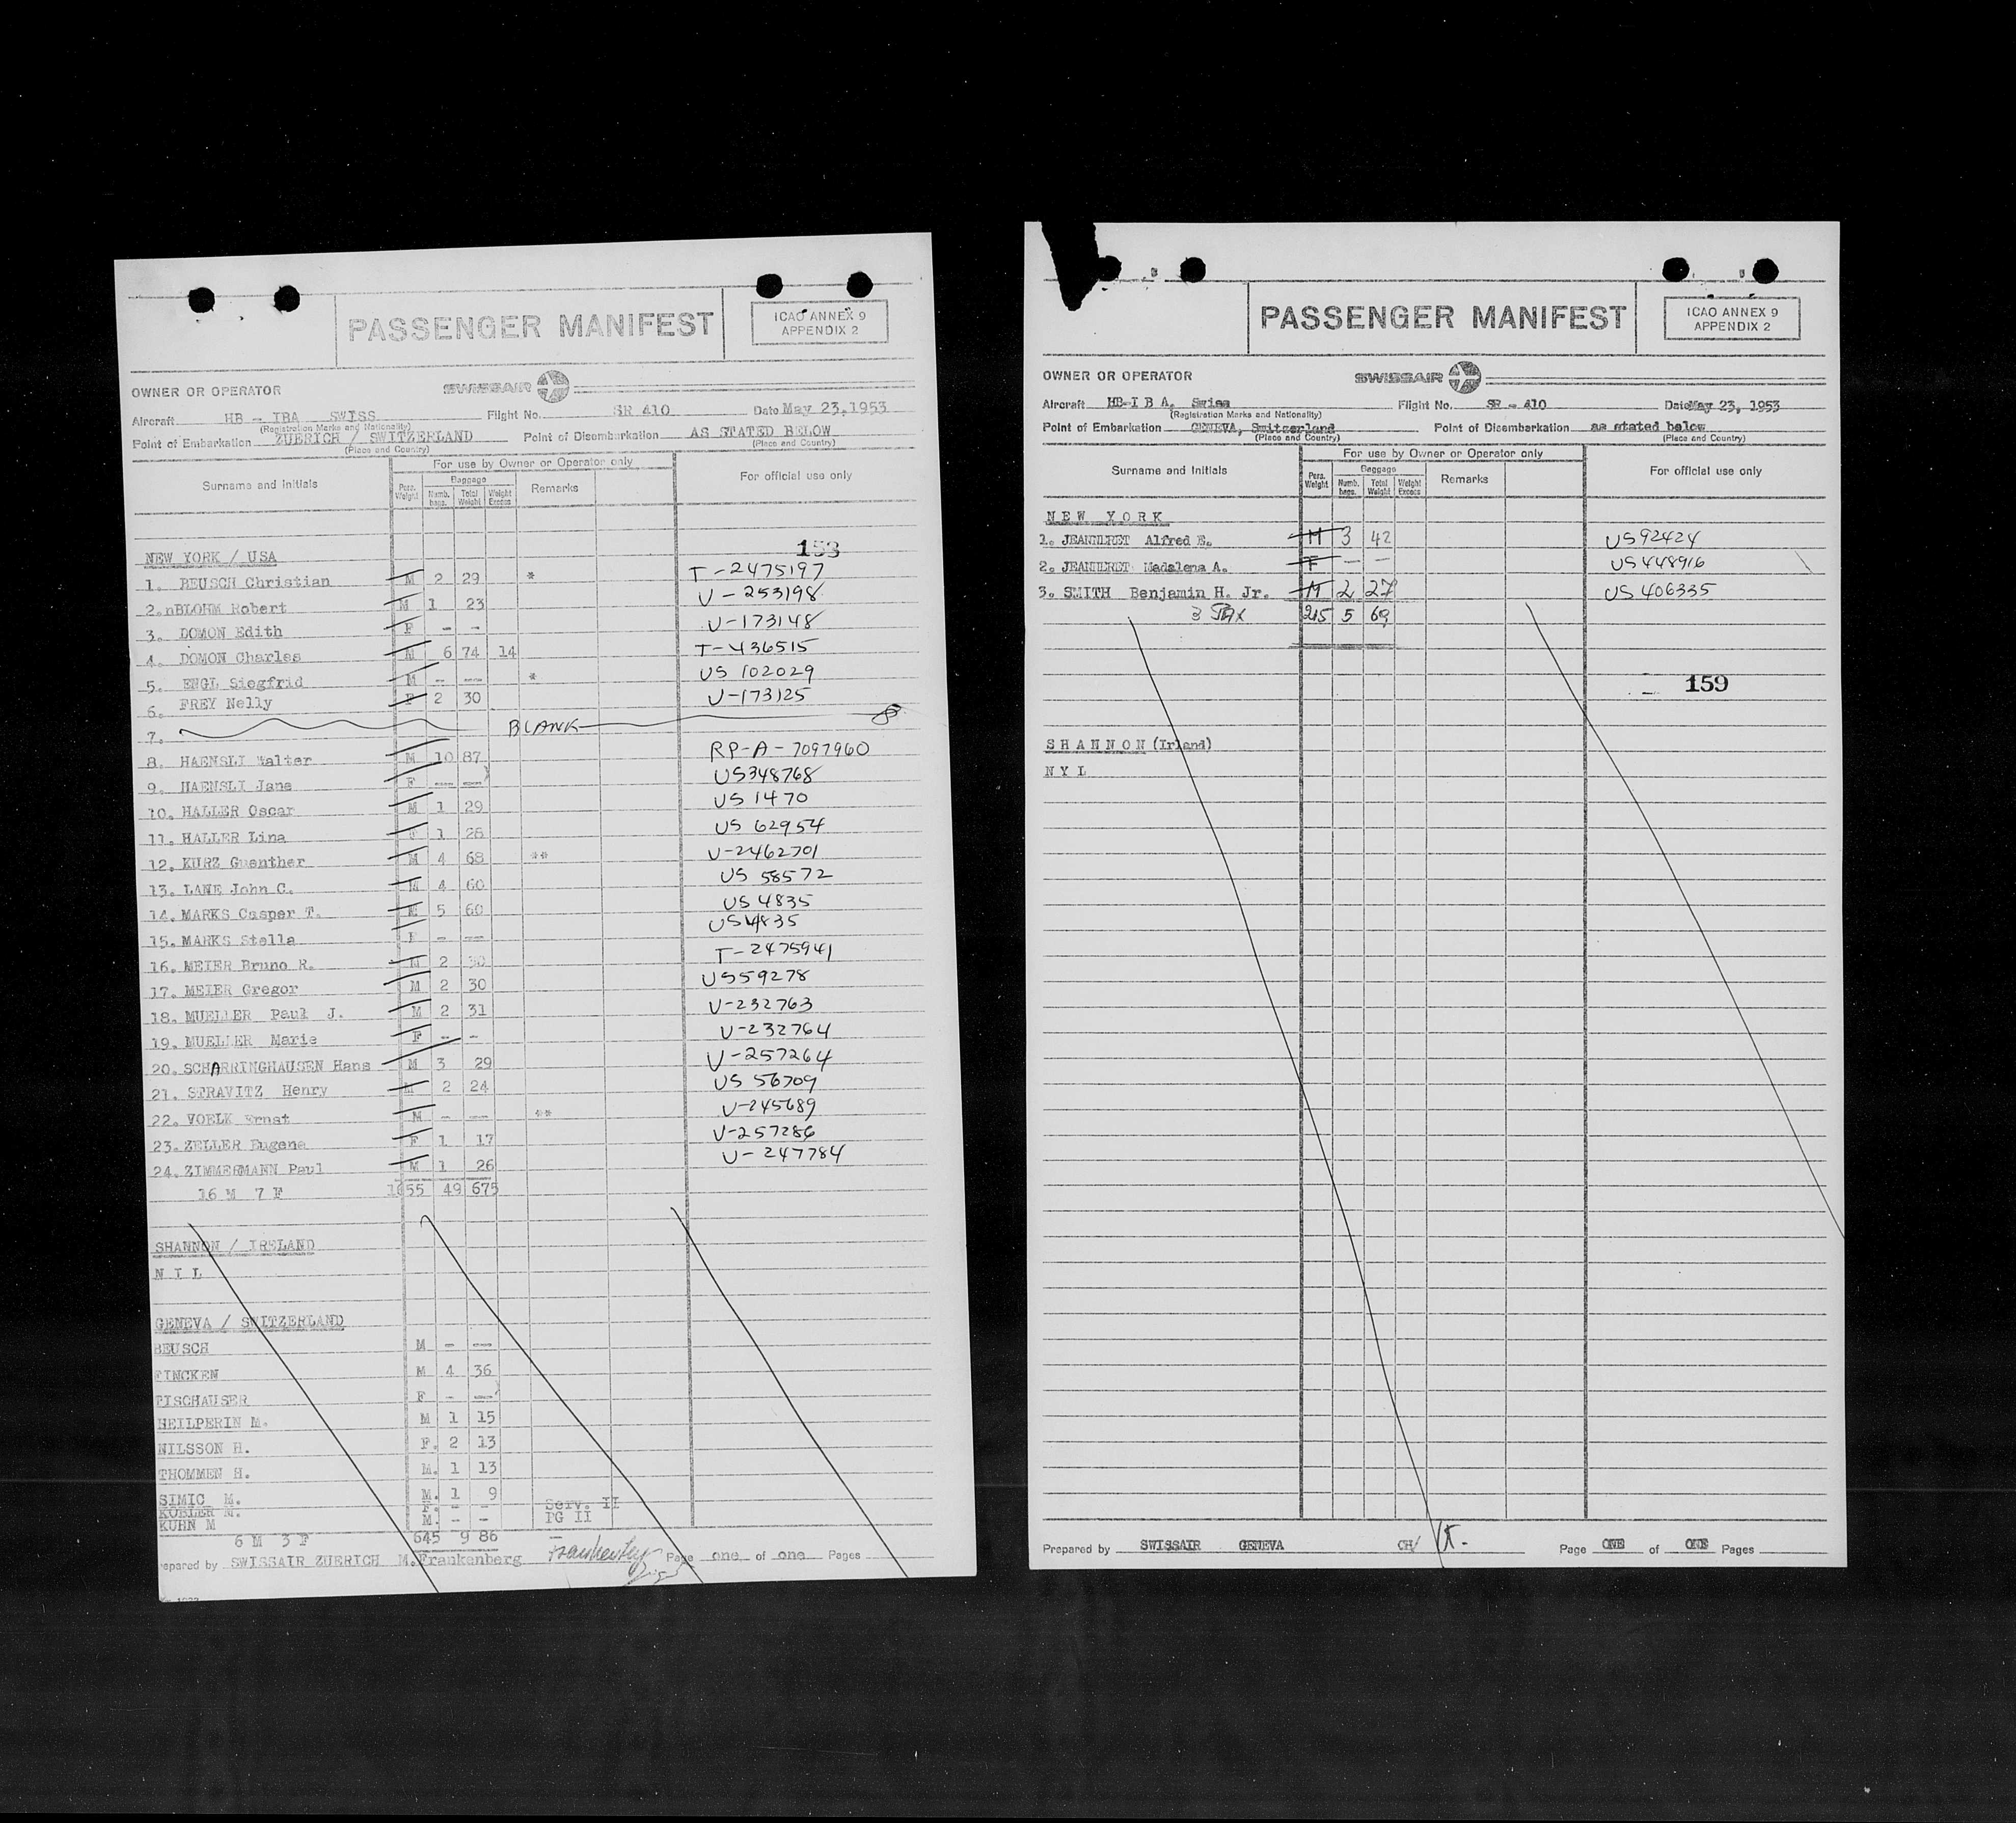 PASSENGER MANIFEST
ICAO ANNEX 9
APPENDIX 2
OWNER OR OPERATOR SWISSAIR
Aircraft HB - IBA SWISS Flight No. SR 410 Date May 23,1953
(Registration Marks and Nationality)
Point of Embarkation ZUERICH / SWITZERLAND Point of Disembarkation AS STATED BELOW
(Place and Country) (Place and Country)
For use by Owner or Operator only
Surname and Initials Pers. Weight Baggage Numb. bags. Total Weight Weight Excess Remarks For official use only
NEW YORK / USA 153
1. BEUSCH Christian M 2 29 * T-2475197
2.nBLOHM Robert M 1 23 V-253198
3. DOMON Edith F - - V-173148
4. DOMON Charles M 6 74 14 T-436515
5. ENGL Siegfrid M - -- * US 102029
6. FREY Nelly F 2 30 V-173125
7. BLANK
8. HAENSLI Walter M 10 87 RP-A-7097960
9. HAENSLI Jane F -- -- US348768
10. HALLER Oscar M 1 29 US 1470
11. HALLER Lina F 1 28 US 62954
12. KURZ Guenther M 4 68 ** V-2462701
13. LANE John C. M 4 60 US 58572
14. MARKS Casper T. M 5 60 US 4835
15. MARKS Stella F - -- US4835
16. MEIER Bruno R. M 2 30 T-2475941
17. MEIER Gregor M 2 30 US59278
18. MUELLER Paul J. M 2 31 V-232763
19. MUELLER Marie F - - V-232764
20. SCHARRINGHAUSEN Hans M 3 29 V-257264
21. STRAVITZ Henry M 2 24 US 56709
22. VOELK Ernst M - -- ** V-245689
23. ZELLER Eugene F 1 17 V-257286
24. ZIMMERMANN Paul M 1 26 V-247784
16 M 7 F 1655 49 675
SHANNON / IRELAND
N I L
GENEVA / SWITZERLAND
BEUSCH M - --
FINCKEN M 4 36
FISCHAUSER F - --
HEILPERIN M. M 1 15
NILSSON H. F. 2 13
THOMMEN H. M. 1 13
SIMIC M. M. 1 9
KUBLER M. F. - - Serv. II
KUHN M M. - - PG II
6 M 3 F 645 9 86
Prepared by SWISSAIR ZUERICH M.Frankenberg Page one of one Pages
PASSENGER MANIFEST
ICAO ANNEX 9
APPENDIX 2
OWNER OR OPERATOR SWISSAIR
Aircraft HB-I B A, Swiss Flight No. SR - 410 Date May 23, 1953
(Registration Marks and Nationality)
Point of Embarkation GENEVA, Switzerland Point of Disembarkation as stated below
(Place and Country) (Place and Country)
For use by Owner or Operator only
Surname and Initials Pers. Weight Baggage Numb. bags. Total Weight Weight Excess Remarks For official use only
NEW YORK
1. JEANNERET Alfred E. M 3 42 US92424
2. JEANNERET Madalena A. F - - US448916
3. SMITH Benjamin H. Jr. M 2 27 US 406335
3 Pax 215 5 69
159
SHANNON (Irland)
N Y L
Prepared by SWISSAIR GENEVA CH/ Page ONE of ONE Pages